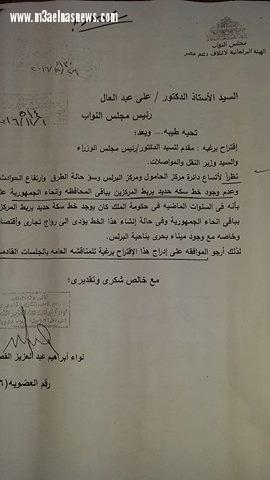 www.m3aelnasnews.com
مجلس النواب
الهيئة البرلمانية لائتلاف دعم مصر
السيد الأستاذ الدكتور / على عبد العال
رئيس مجلس النواب
تحيه طيبه... وبعد؛
إقتراح برغبه : مقدم للسيد الدكتور/رئيس مجلس الوزراء
والسيد وزير النقل والمواصلات.
نظراً لأتساع دائرة مركز الحامول ومركز البرلس وسؤ حالة الطرق وارتفاع الحوادث
وعدم وجود خط سكه حديد يربط المركزين بباقى المحافظه وانحاء الجمهورية
بأنه فى السنوات الماضيه فى حكومة الملك كان يوجد خط سكه حديد يربط المركز
بباقى أنحاء الجمهورية وفى حالة إنشاء هذا الخط يؤدى الى رواج تجارى وأقتصا
وخاصه مع وجود ميناء بحرى بناحية البرلس.
لذلك أرجو الموافقه على إدراج هذا الإقتراح برغبة للمناقشه العامه بالجلسات القادمة
مع خالص شكرى وتقديرى؛
لواء أبراهيم عبد العزيز القص
رقم العضويه (